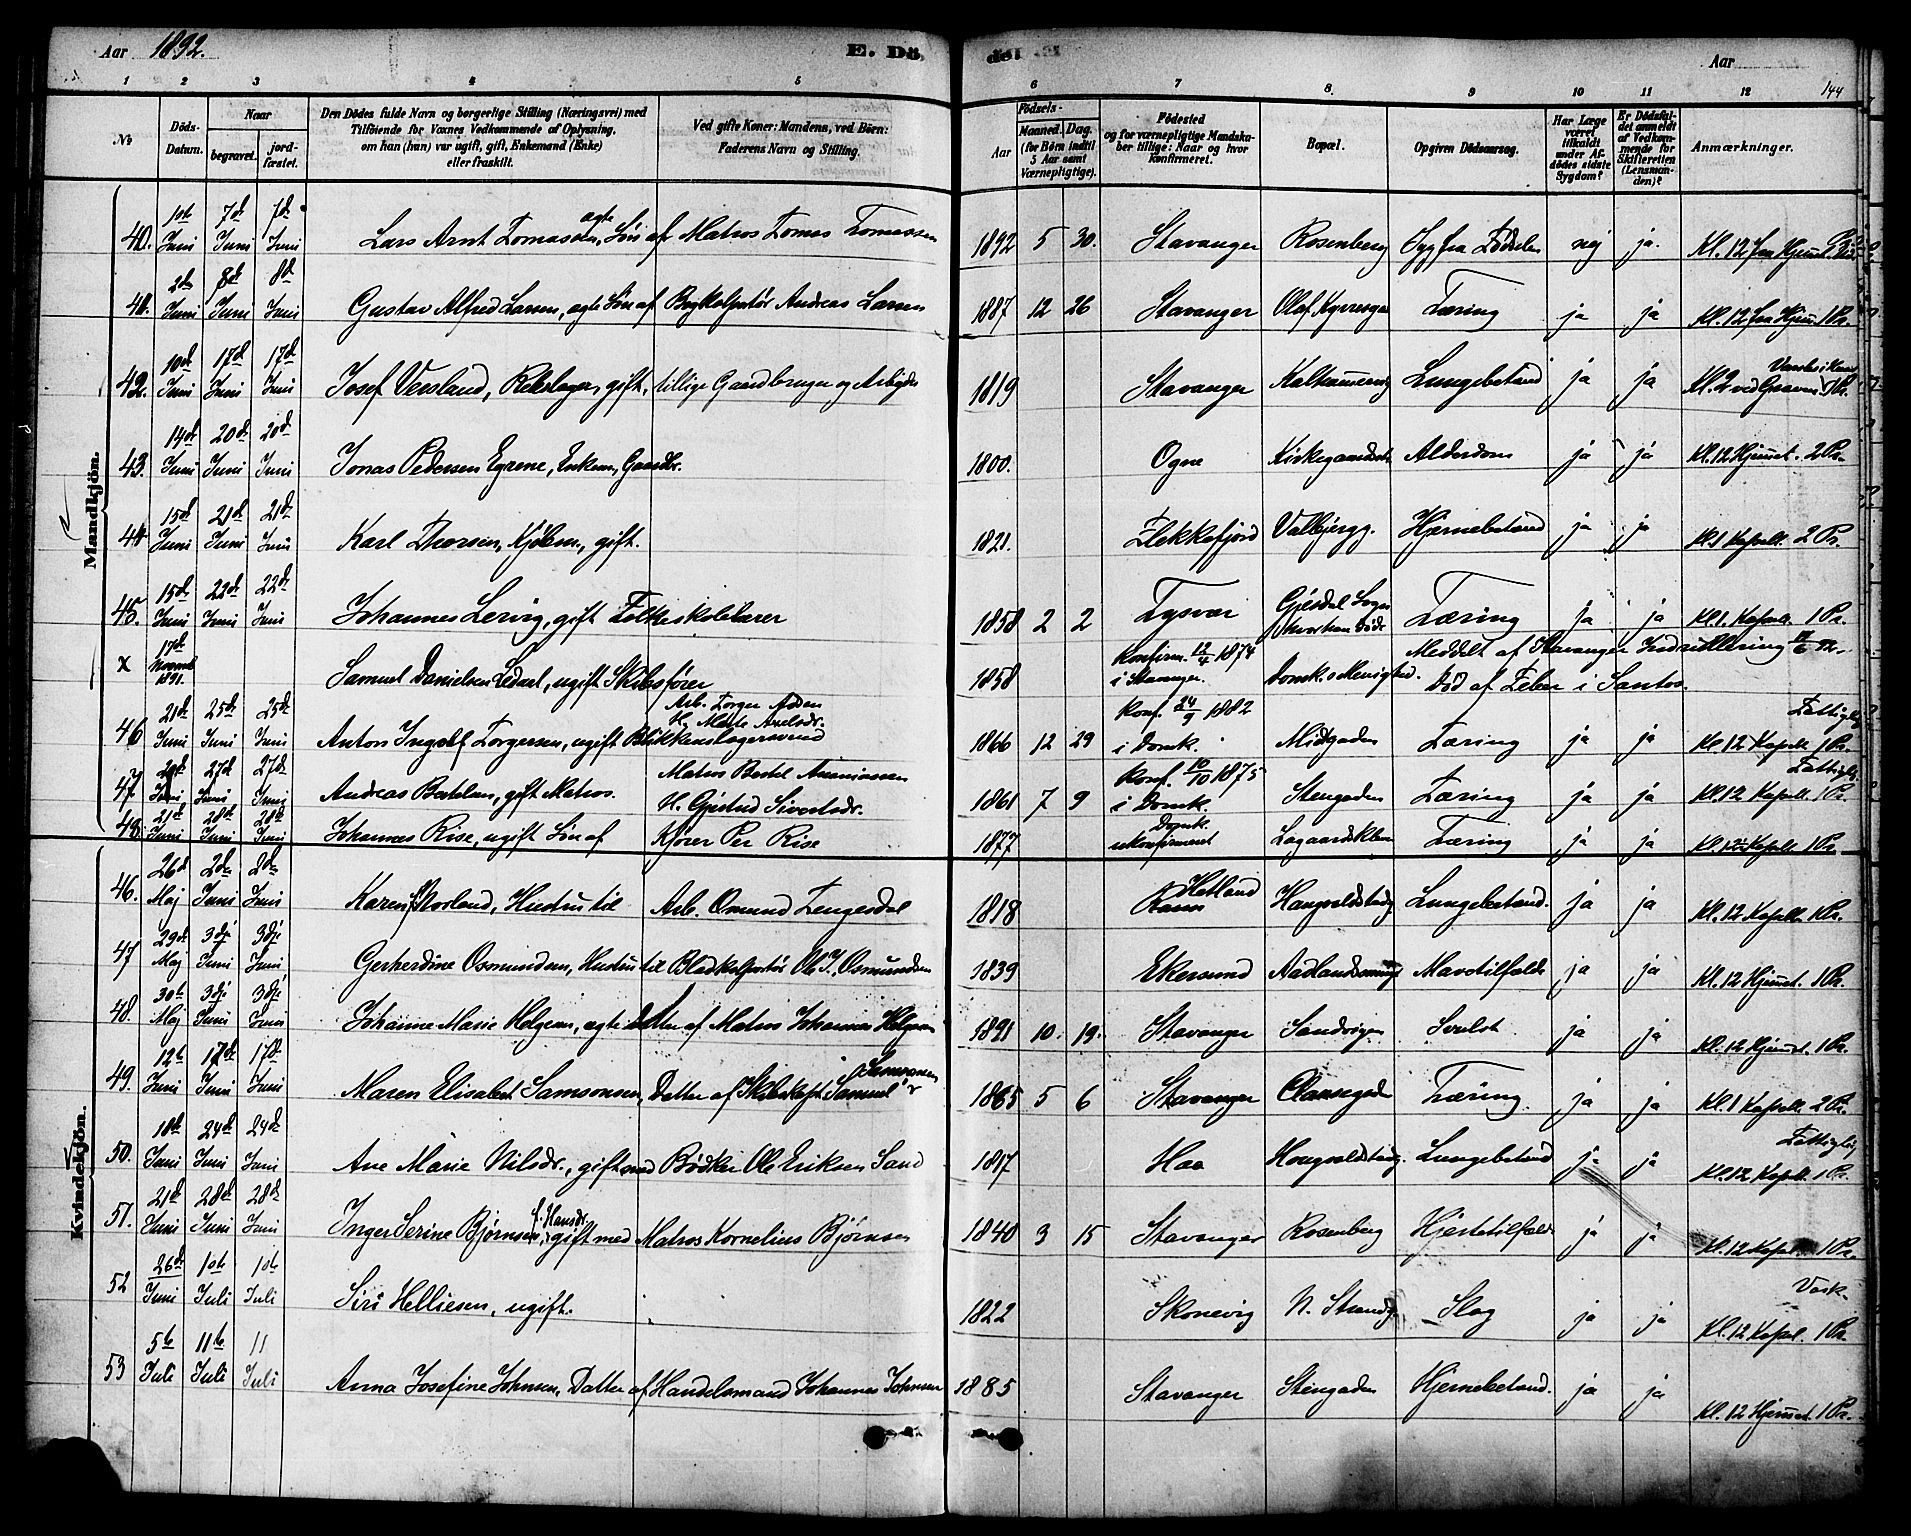 Aar 1892.
E. Dö,
de!
Aar
144
1 2 3 4 5 6 7 8. 9 10 11 12
№
Döds-Datum.
Naar
begravet.
jord-fæstet.
Den Dödes fulde Navn og borgerlige Stilling (Næringsvei) med
Tilföiende for Voxnes Vedkommende af Oplysning,
om han (hun) var ugift, gift, Enkemand (Enke)
eller fraskilt.
Ved gifte Koner: Mandens, ved Börn:
Faderens Navn og Stilling.
Födsels-
Aar
Maaned. Dag.
(for Börn indtil
5 Aar samt
Værnepligtige).
Födested
og for værnepligtige Mandska-
ber tillige: Naar og hvor
konfirmeret.
Bopæl.
Opgiven Dödsaarsag.
Har Læge
været
tilkaldt
under Af-
dödes sidste
Sygdom?
Er Dödsfal-
det anmeldt
af Vedkom-
mende for
Skifteretten
(Lensman-
den)?
Anmærkninger.
Mandkjön.
40. 1ste Juni 7de Juni 7de Juni Lars Arnt Tomassen, ægte Søn af Matros Tomas Tomassen 1892 5 30. Stavanger Rosenberg Syg fra Fødselen nej ja. Kl. 12 fra Hjemmet
41. 2de Juni 8de Juni 8d Juni Gustav Alfred Larsen, ægte Søn af Bogkolportør Andreas Larsen 1887 12 26 Stavanger Olaf Kyrresgd Tæring ja ja Kl. 12 fra Hjem. 1 Pr.
42. 10de Juni 17d Juni 17d Juni Josef Versland, Rebslager, gift, tillige Gaardbruger og Arbeider 1819 Stavanger Kalhammervig Lungebetænd ja ja Kl. 2 ved Graven 1 Pr.
43. 14de Juni 20de Juni 20de Juni Jonas Pedersen Egrene, Enkem., Gaardbr. 1800. Ogne Kirkegaardsvei Alderdom ja ja Kl. 12 Hjemmet. 2 Pr.
44 15de Juni 21de Juni 21de Juni Karl Thorsen, Kjøbm., gift. 1821. Flekkefjord Valbjergg. Hjernebetænd ja ja Kl. 1 Kapell. 2 Pr.
45. 15de Juni 22de Juni 22de Juni Johannes Lervig, gift Folkeskolelærer 1858 2 2 Tysvær Gjesdal Sogn hvor han døde Tæring ja ja Kl. 1. Kapell. 1 Pr.
x 17de Novemb 1891. Samuel Danielsen Ledaal, ugift Skibsfører 1858 Konfirm. 12/4 1874 i Stavanger. Domk.s Menighed. Meddelt af Stavanger Indrullering Død af Feber i Santos.
46 21de Juni 25de Juni 25de Juni Anton Ingolf Torgersen, ugift Blikkenslagersvend Arb. Torger H. Marte Axelsdr. 1866 12 29 Konf. 24/9 1882 i Domk. Midtgaden Tæring ja ja Fattiglig Kl. 12 Kapell 1 Pr.
47. 20de Juni 27d Juni 27de Juni Andreas Bertelsen, gift Matros. Matros Bertel Ananiassen H. Gjertrud Sivertsdr. 1861 7 9 Konf. 10/10 1875 i Domk. Stengaden Tæring ja ja Fattiglig Kl. 12 Kapell 1 Pr.
48. 21de Juni 28de Juni 28de Juni Johannes Rise, ugift Søn af Kjører Per Rise 1877 Domk. ukonfirmeret Lagaardskleven Tæring ja ja Kl. 12 Kapell. 1 Pr.
Kvindekjön.
46. 26d Maj 2de Juni 2de Juni Karen Storland, Hustru til Arb. Omund Tengesdal 1818 Hetland Haugvaldstadg Lungebetænd. ja ja Kl. 12 Kapell. 1 Pr.
47 29de Maj 3dje Juni 3dje Juni, Gerherdine Osmundsen, Hustru til Bladkolportør Ole T. Osmundsen 1839 Ekersund Aadlandsmynd Mavetilfælde ja ja Kl. 12 Hjemmet. 1 Pr.
48. 30te Maj 3dje Juni 3dje Juni Johanne Marie Helgesen, ægte Datter af Matros Johannes Helgesen 1891 10. 19. Stavanger Sandvigen Svulst ja ja Kl. 12 Hjemmet. 1 Pr.
49. 12te Juni 17de Juni 17de Juni Maren Elisabet Samsonsen, Datter af Skibskapt. Samuel Samsonsen 1865 5 6 Stavanger Clausegaden Tæring. ja ja Kl. 1 Kapell. 2 Pr.
50. 18de Juni 24de Juni 24de Juni Ane Marie Nilsdr., gift med Bødker Ole Eriksen Sand 1817 Haa Hougvaldstadg. Lungebetænd ja ja Fattiglig Kl. 12 Kapell. 1 Pr.
51. 21de Juni 28de Juni 28de Juni Inger Serine Bjørnsen, f. Hansdr. gift med Matros Kornelius Bjørnsen 1840 3 15 Stavanger Rosenberg Hjertetilfælde ja ja Kl. 12 Kapel. 1 Pr.
52 26de Juni 1ste Juli 1ste Juli Siri Helliesen, ugift. 1822 Skonevig N. Strandg Slag ja ja Vask- Kl. 12 Kapel. 1 Pr.
53 5te Juli 11te Juli 11 Juli Anna Josefine Johnsen, Datter af Handelsmand Johannes Johnsen 1885 Stavanger Stengaden Hjernebetænd. ja ja Kl. 12 Hjemmet. 1 Pr.